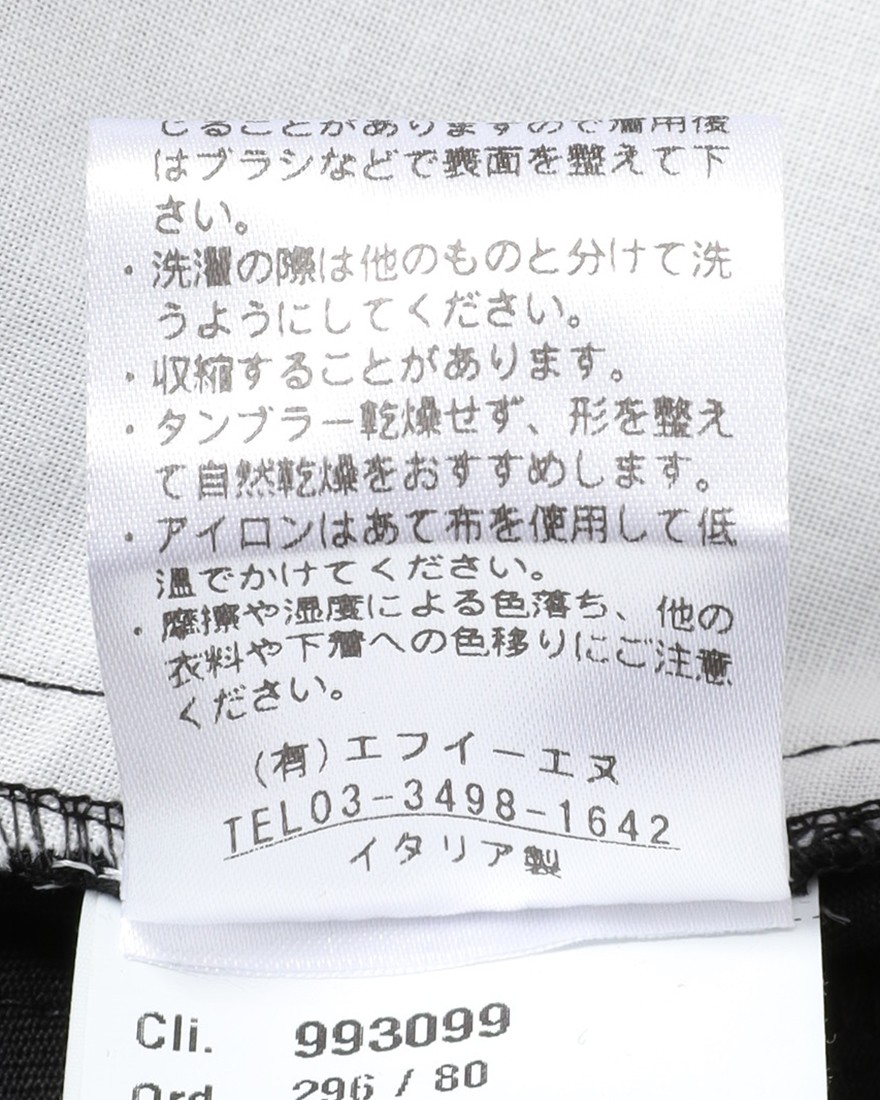 じることがありますので着用後
はブラシなどで表面を整えて下
さい。
・洗濯の際は他のものと分けて洗
うようにしてください。
・収縮することがあります。
・タンブラー乾燥せず、形を整え
て自然乾燥をおすすめします。
・アイロンはあて布を使用して低
温でかけてください。
・摩擦や湿度による色落ち、他の
衣料や下着への色移りにご注意
ください。
(有)エフイーエヌ
TEL03-3498-1642
イタリア製
Cli. 993099
Ord 296 / 80